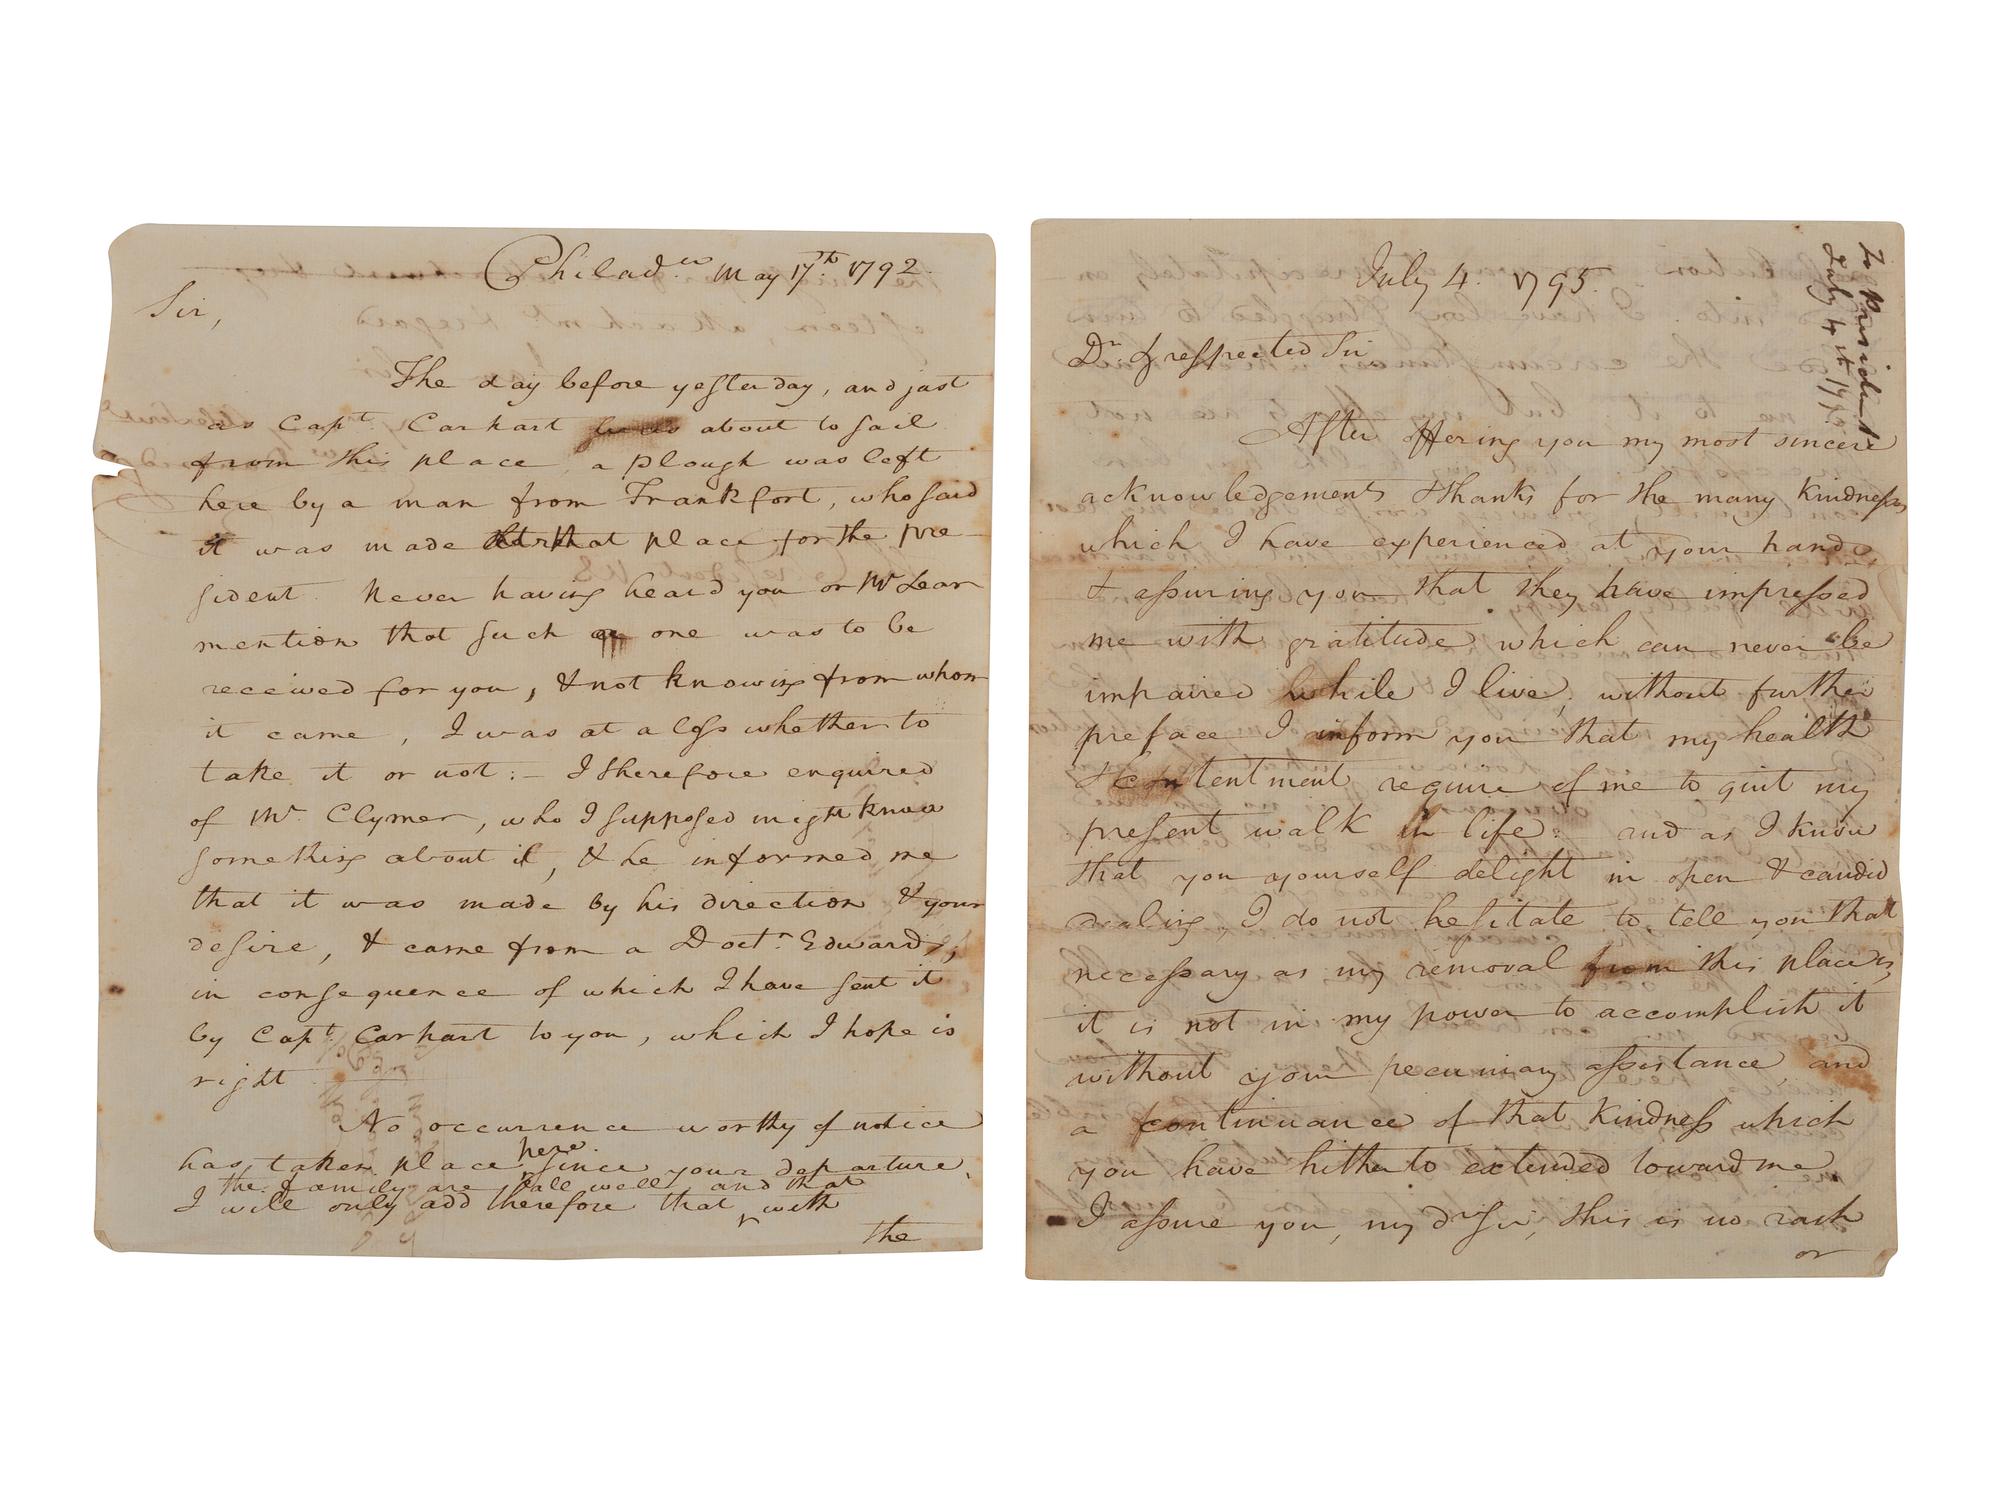 Philad.ᵃ May 17.ᵗʰ 1792.
Sir,
The day before yesterday, and just
as Capᵗ. Carhart was about to sail
from this place, a plough was left
here by a man from Frankfort, who said
it was made at that place for the pre-
sident. Never having heard you or Mʳ Lear
mention that such a one was to be
received for you, & not knowing from whom
it came, I was at a loss whether to
take it or not:— I therefore enquired
of Mʳ. Clymer, who I supposed might know
something about it, & he informed me
that it was made by his direction & your
desire, & came from a Doctʳ. Edwards,
in consequence of which I have sent it
by Capᵗ. Carhart to you, which I hope is
right
No occurrence worthy of notice
here
has taken place since your departure,
the family are all well, and that
I will only add therefore that with
the
July 4. 1795.
Dʳ & respected Sir
After offering you my most sincere
acknowledgements & thanks for the many kindnesses
which I have experienced at your hands,
& assuring you that they have impressed
me with gratitude which can never be
impaired while I live, without further
preface I inform you that my health
& contentment require of me to quit my
present walk in life: and as I know
that you yourself delight in open & candid
dealing, I do not hesitate to tell you that
necessary as my removal from this place is,
it is not in my power to accomplish it
without your pecuniary assistance, and
a continuance of that kindness which
you have hitherto extended toward me
I assure you, my dʳ Sir, this is no rash
or
To President
July 4ᵗʰ 179